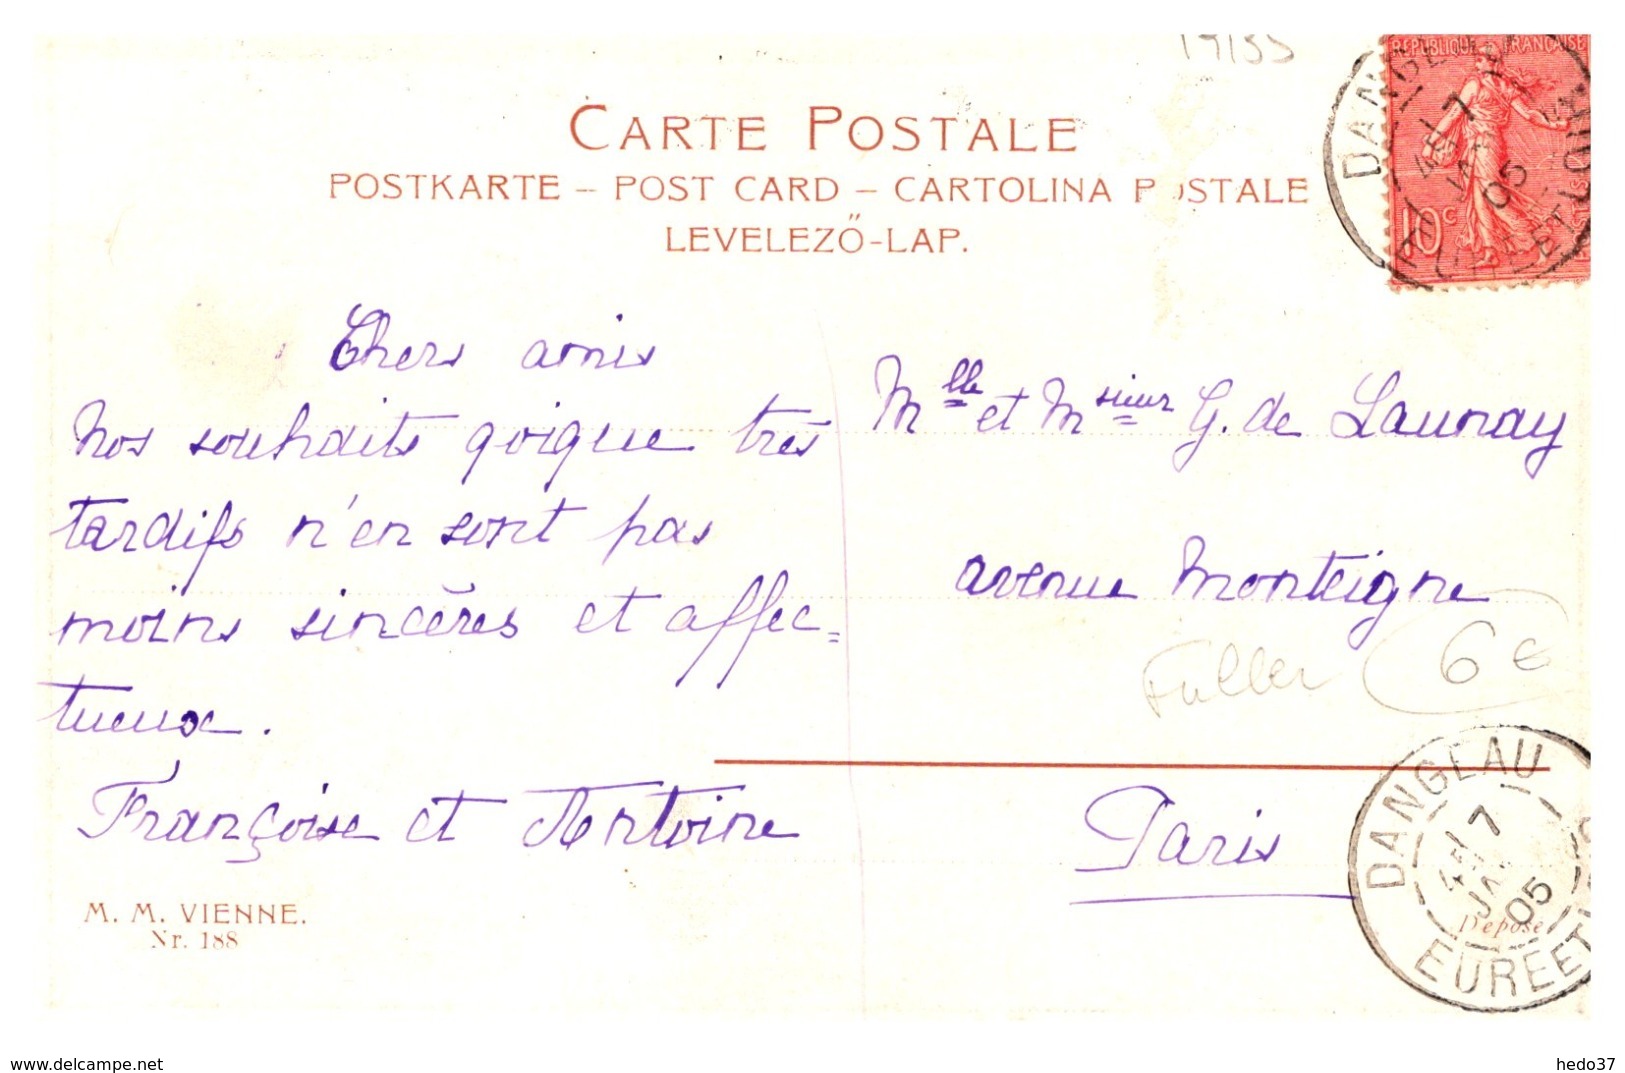 19135
CARTE POSTALE
POSTKARTE – POST CARD – CARTOLINA POSTALE
LEVELEZŐ-LAP.
RÉPUBLIQUE FRANÇAISE
10c
DANGEAU
7
05
EURE ET LOIR
Chers amis
Nos souhaits qoique très
tardifs n'en sont pas
moins sincères et affec=
tueux.
Françoise et Antoine
Mlle et Msieur G. de Launay
avenue Monteigne
Fuller 6 €
Paris
M. M. VIENNE.
Nr. 188
DANGEAU
7
05
EURE ET
Déposé
www.delcampe.net
hedo37